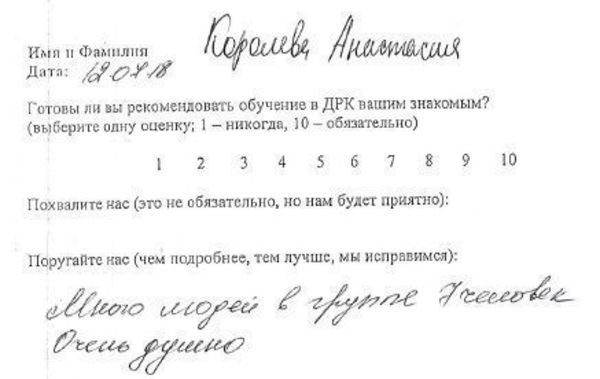 Королева Анастасия
Имя и Фамилия
Дата: 12.07.18
Готовы ли вы рекомендовать обучение в ДРК вашим знакомым?
(выберите одну оценку; 1 – никогда, 10 – обязательно)
1 2 3 4 5 6 7 8 9 10
Похвалите нас (это не обязательно, но нам будет приятно):
Поругайте нас (чем подробнее, тем лучше, мы исправимся):
Много людей в группе 7 человек
Очень душно